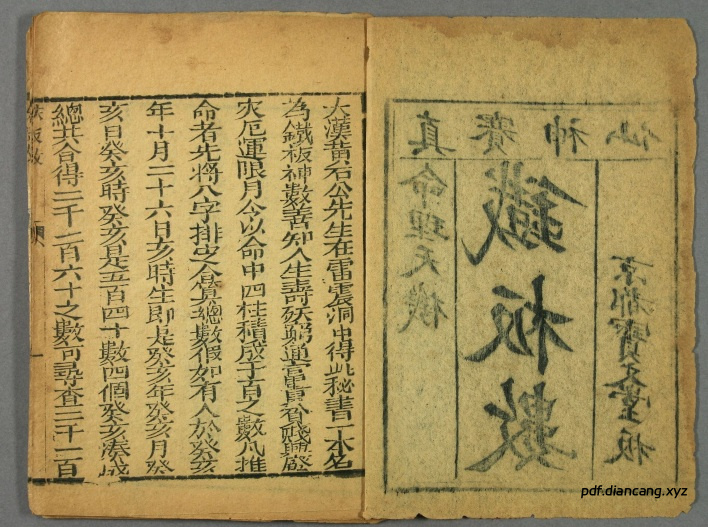 真賽神仙
命理天機
鐵板數
京都寶文堂板
大漢黃石公先生在雷震洞中得此秘書一本名
為鐵板神數善知人生壽殀窮通富貴貧賤興廢
灾厄運限月令以命中四柱積成千百之數凡推
命者先將八字排定合算總數假如有人於癸亥
年十月二十六日亥時生即是癸亥年癸亥月癸
亥日癸亥時癸亥是五百四十數四個癸亥湊成
總共合得二千一百六十之數可尋查二千一百
pdf.diancang.xyz